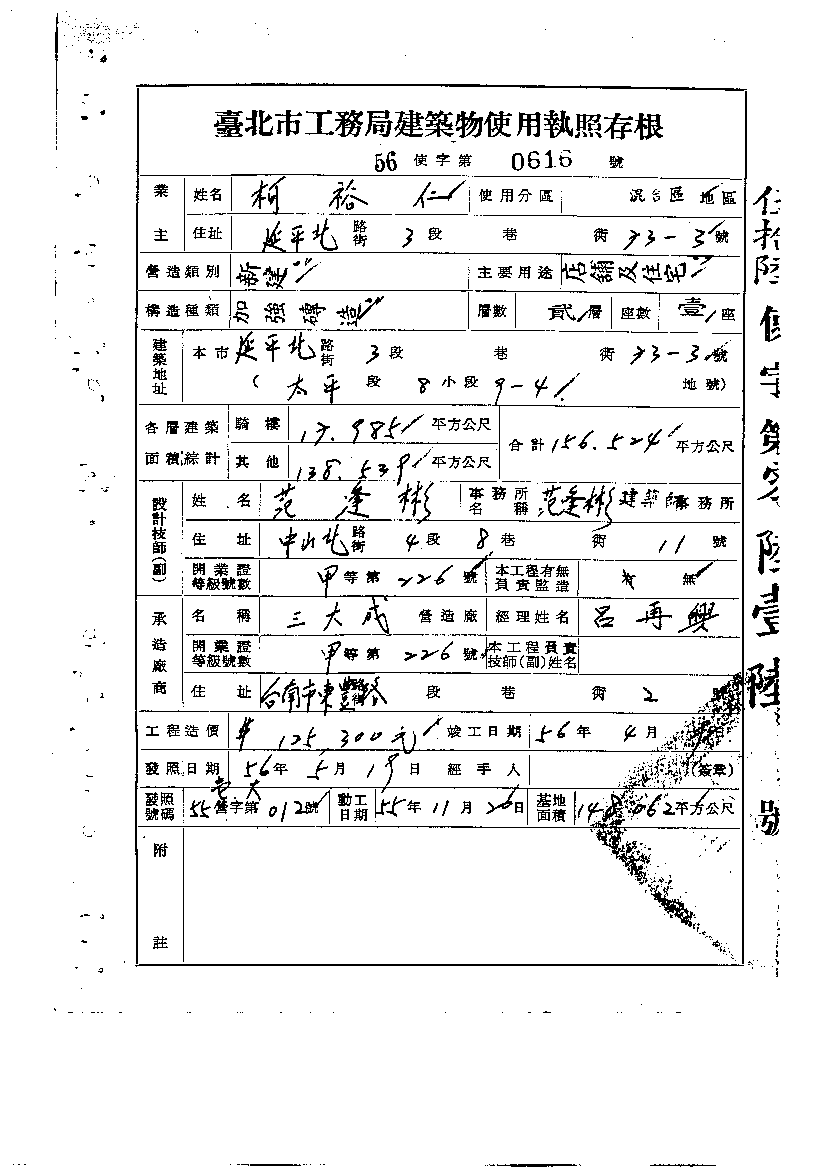 臺北市工務局建築物使用執照存根
56 使字第 0616 號
業主 姓名 柯裕仁 使用分區 混合區 地區
住址 延平北 路街 3 段 巷 街 33-3 號
營造類別 新建 主要用途 店鋪及住宅
構造種類 加強磚造 層數 貳 層 座數 壹 座
建築地址 本市 延平北 路街 3 段 巷 街 33-3 號
( 太平 段 8 小段 9-41 地號)
各層建築面積綜計 騎樓 17.985 平方公尺 合計 156.524 平方公尺
其他 138.539 平方公尺
設計技師(副) 姓名 范逢彬 事務所名稱 范逢彬建築師事務所
住址 中山北 路街 4 段 8 巷 街 11 號
開業證等級號數 甲 等第 226 號 本工程有無負責監造 有 無
承造廠商 名稱 三大成 營造廠 經理姓名 呂再興
開業證等級號數 甲 等第 226 號 本工程負責技師(副)姓名
住址 台南市東豐路 段 巷 街 2 號
工程造價 $125,300元 竣工日期 56 年 4 月 日
發照日期 56 年 5 月 19 日 經手人 (簽章)
發照號碼 55 營字第 012 號 動工日期 55 年 11 月 26 日 基地面積 148.062 平方公尺
附註
伍拾陸使字第零陸壹陸號